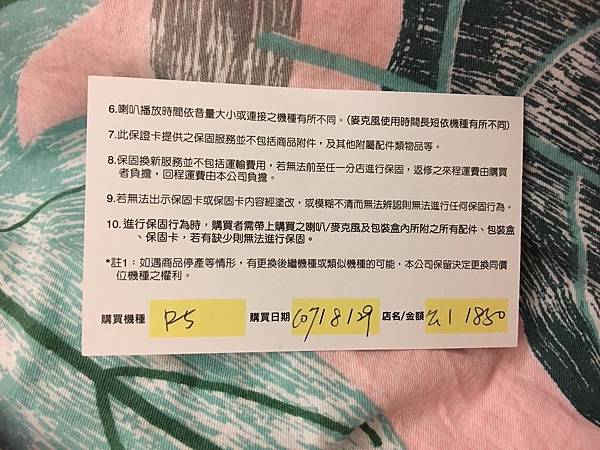 6.喇叭播放時間依音量大小或連接之機種有所不同。(麥克風使用時間長短依機種有所不同)
7.此保證卡提供之保固服務並不包括商品附件，及其他附屬配件類物品等。
8.保固換新服務並不包括運輸費用，若無法前至任一分店進行保固，返修之來程運費由購買
者負擔，回程運費由本公司負擔。
9.若無法出示保固卡或保固卡內容經塗改，或模糊不清而無法辨認則無法進行任何保固行為。
10.進行保固行為時，購買者需帶上購買之喇叭/麥克風及包裝盒內所附之所有配件、包裝盒
、保固卡，若有缺少則無法進行保固。
*註1：如遇商品停產等情形，有更換後繼機種或類似機種的可能，本公司保留決定更換同價
位機種之權利。
購買機種 購買日期 店名/金額 1850